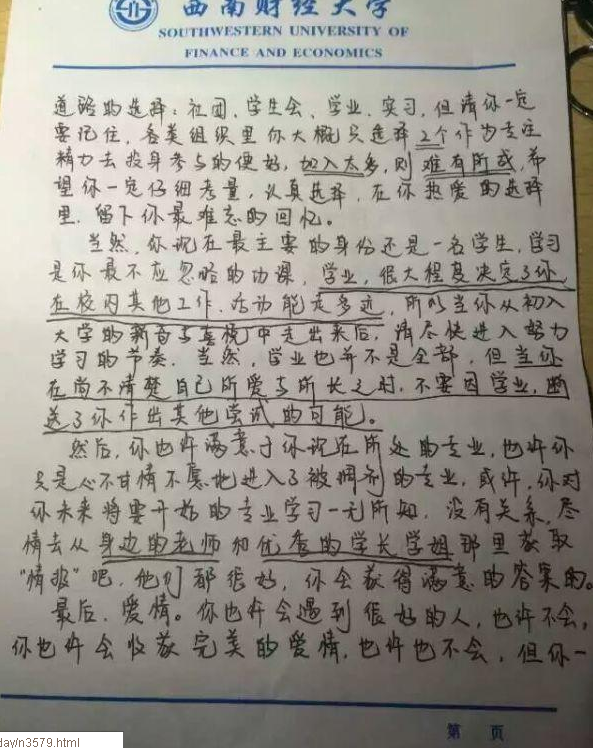 西南财经大学
SOUTHWESTERN UNIVERSITY OF
FINANCE AND ECONOMICS
道路的选择：社团、学生会、学业、实习，但请你一定
要记住，各类组织里你大概只选择2个作为专注
精力去投身参与的便好，加入太多，则难有所成，希
望你一定仔细考量，认真选择，在你热爱的选择
里，留下你最难忘的回忆。
当然，你现在最主要的身份还是一名学生，学习
是你最不应忽略的功课，学业，很大程度决定了你
在校内其他工作、活动能走多远，所以当你从初入
大学的新奇与喜悦中走出来后，请尽快进入努力
学习的节奏。当然，学业也并不是全部，但当你
在尚不清楚自己所爱与所长之时，不要因学业，断
送了你作出其他尝试的可能。
然后，你也许满意于你现在所处的专业，也许你
只是心不甘情不愿地进入了被调剂的专业，或许，你对
你未来将要开始的专业学习一无所知，没有关系，尽
情去从身边的老师和优秀的学长学姐那里获取
“情报”吧，他们都很好，你会获得满意的答案的。
最后，爱情。你也许会遇到很好的人，也许不会，
你也许会收获完美的爱情，也许也不会，但你一
第 页
day/n3579.html